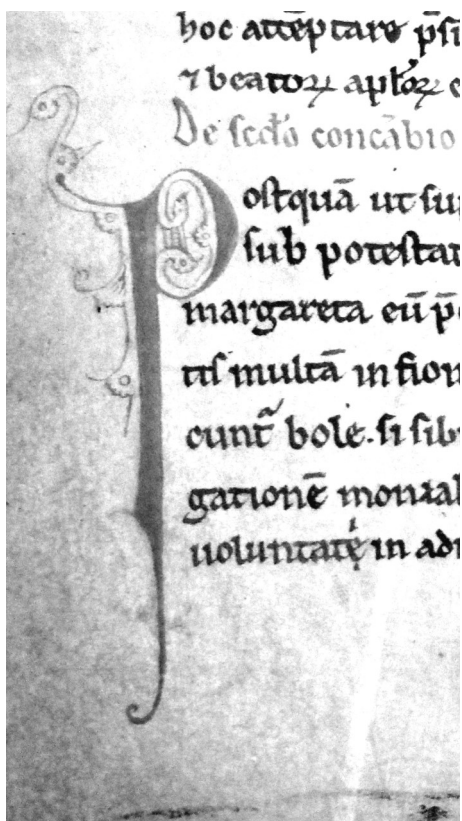 hoc attēptare p̄si
⁊ beatoꝝ apl'oꝝ e
De scd'o concābio
Postquā ut sup
sub potestat
margareta eū p̄
tis multā in fion
cunt bole. si sib
gationē monial
uoluntatē in adi